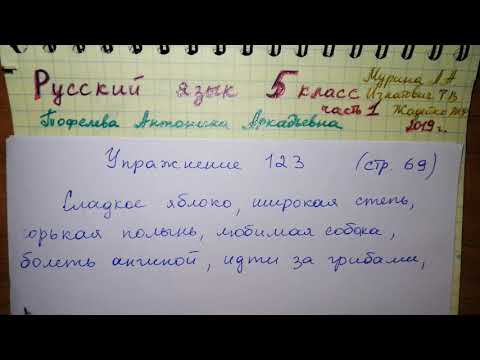 Русский язык 5 класс
часть 1
Мурина Л.А
Игнатович Т.В.
Жадейко Ж.Ф
2019г.
Антонина Аркадьевна
Упражнение 123 (стр. 69)
Сладкое яблоко, широкая степь,
горькая полынь, любимая собака,
болеть ангиной, идти за грибами,